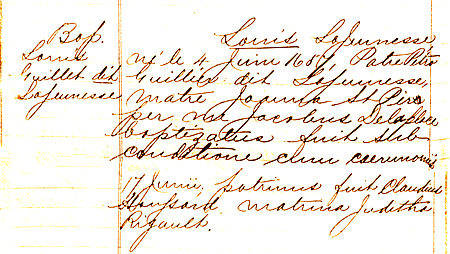 Bap.
Louis
Guillet dit
Lajeunesse
Louis Lajeunesse
né le 4 Juin 1687, Patre Petro
Guillet dit Lajeunesse,
matre Joanna St Père
per me Jacobus Delaplace
baptizatus fuit sub
conditione cum caeremoniis
17 Junii. patrinus fuit Claudius
Houssard matrina Juditha
Rigault.